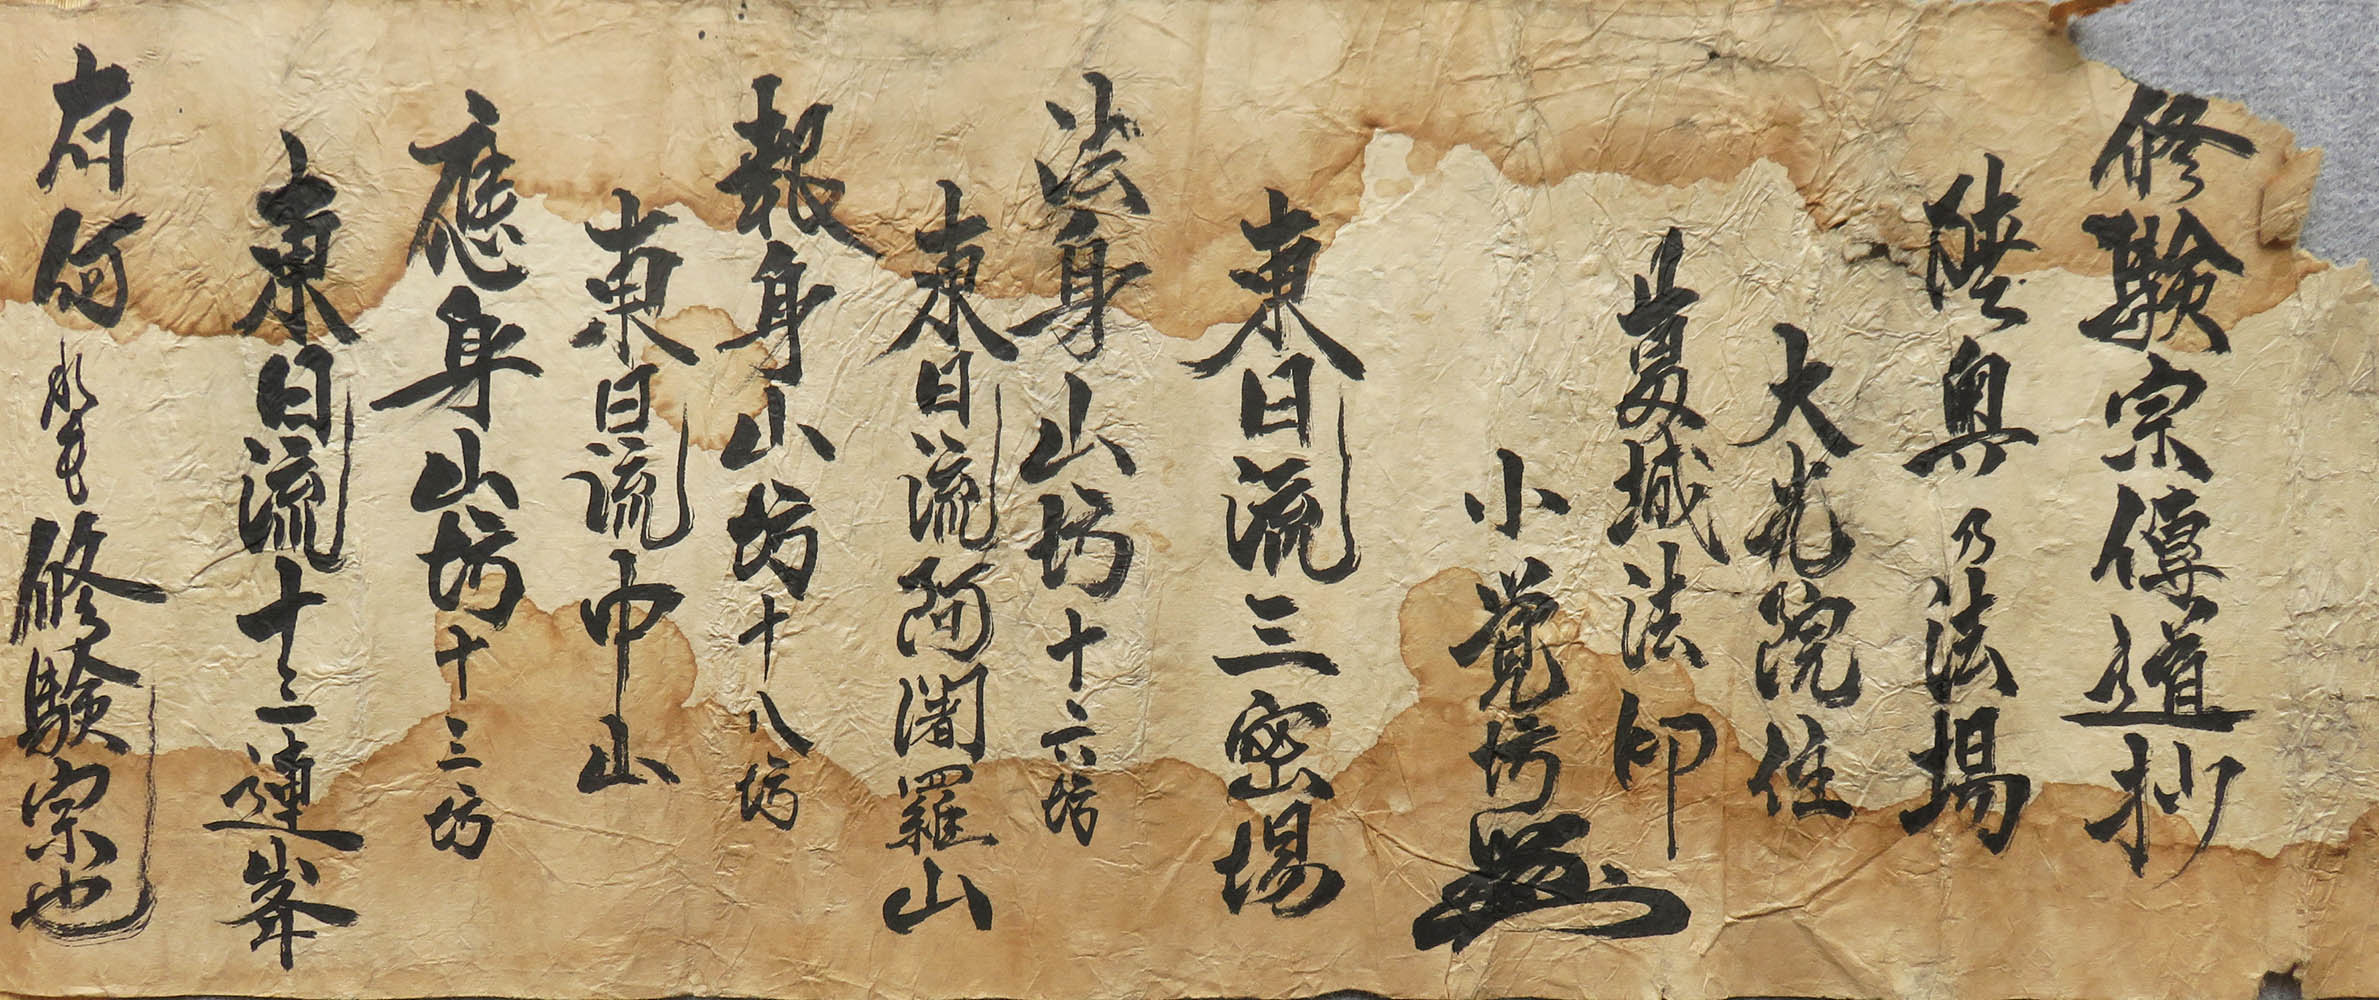 修験宗傳道抄
陸奥乃法場
大光院住
葛城法印
小覚坊
東日流三密場
法身山坊十六坊
東日流阿闍羅山
報身山坊十八坊
東日流中山
應身山坊十三坊
東日流十三連峯
右何 修験宗也